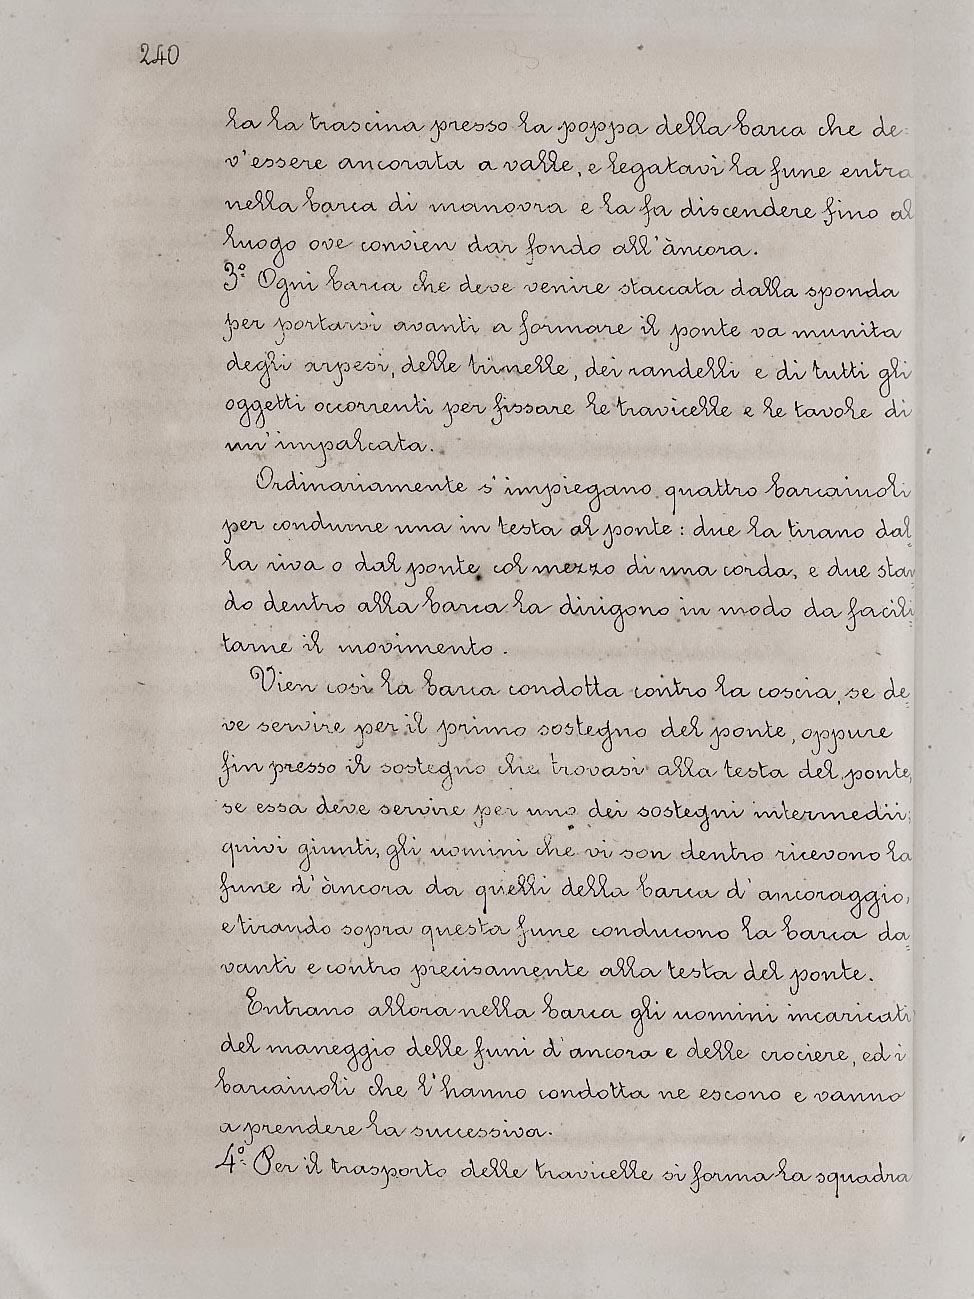 240
la la trascina presso la poppa della barca che de-
v'essere ancorata a valle, e legatavi la fune entra
nella barca di manovra e la fa discendere fino al
luogo ove convien dar fondo all'àncora.
3.° Ogni barca che deve venire staccata dalla sponda
per portarsi avanti a formare il ponte va munita
degli arpesi, delle trinelle, dei randelli e di tutti gli
oggetti occorrenti per fissare le travicelle e le tavole di
un'impalcata.
Ordinariamente s'impiegano quattro barcaiuoli
per condurne una in testa al ponte: due la tirano dal-
la riva o dal ponte col mezzo di una corda, e due stan-
do dentro alla barca la dirigono in modo da facili-
tarne il movimento.
Vien così la barca condotta contro la coscia, se de-
ve servire per il primo sostegno del ponte, oppure
fin presso il sostegno che trovasi alla testa del ponte,
se essa deve servire per uno dei sostegni intermedii;
quivi giunti, gli uomini che vi son dentro ricevono la
fune d'àncora da quelli della barca d'ancoraggio,
e tirando sopra questa fune conducono la barca da-
vanti e contro precisamente alla testa del ponte.
Entrano allora nella barca gli uomini incaricati
del maneggio delle funi d'ancora e delle crociere, ed i
barcaiuoli che l'hanno condotta ne escono e vanno
a prendere la successiva.
4.° Per il trasporto delle travicelle si forma la squadra